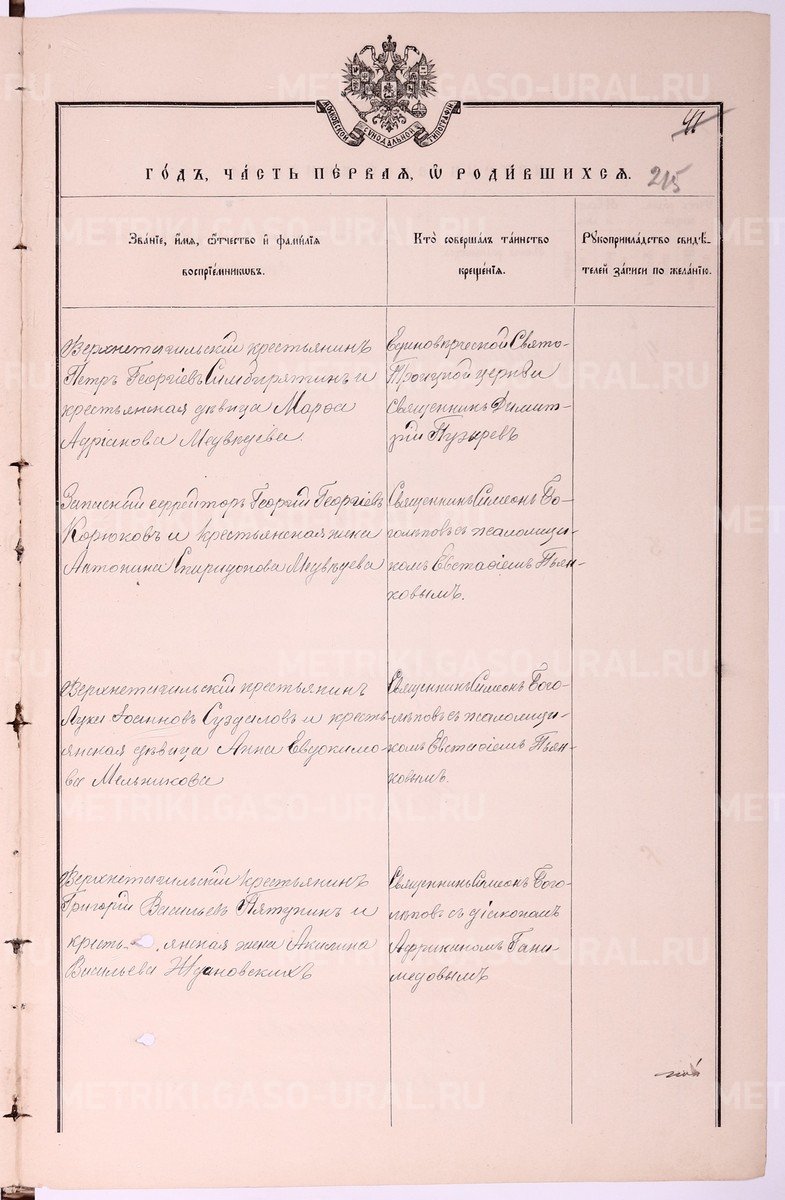 МОСКОВСКОЙ СѴНОДАЛЬНОЙ ТИПОГРАФІИ
41
ГОДЪ, ЧАСТЬ ПЕРВАЯ, Ѿ РОДИВШИХСЯ.
215
Званіе, имя, ѻтчество и фамилія
воспріемникѡвъ.
Кто совершалъ таинство
крещенія.
Рукоприкладство свидѣ-
телей записи по желанію.
Верхнетагильский крестьянинъ
Петръ Георгіевъ Симбирятинъ и
крестьянская дѣвица Марѳа
Адріанова Медвѣдева.
Единовѣрческой Свято-
Троицкой церкви
священникъ Димит-
рій Пузыревъ
Запасный ефрейторъ Георгій Георгіевъ
Корюковъ и крестьянская жена
Антонина Спиридонова Медвѣдева
Священникъ Симеонъ Бо-
голѣповъ съ псаломщи-
комъ Евстафіемъ Пьян-
ковымъ.
Верхнетагильскій крестьянинъ
Лука Іоанновъ Суздаловъ и кресть-
янская дѣвица Анна Евдокимо-
ва Мельникова
Священникъ Симеонъ Бого-
лѣповъ съ псаломщи-
комъ Евстафіемъ Пьян-
ковымъ.
Верхнетагильскій крестьянинъ
Григорій Васильевъ Пятунинъ и
кресть- янская жена Акилина
Васильева Ждановскихъ
Священникъ Симеонъ Бого-
лѣповъ съ діакономъ
Африканомъ Гани-
медовымъ
METRIKI.GASO-URAL.RU